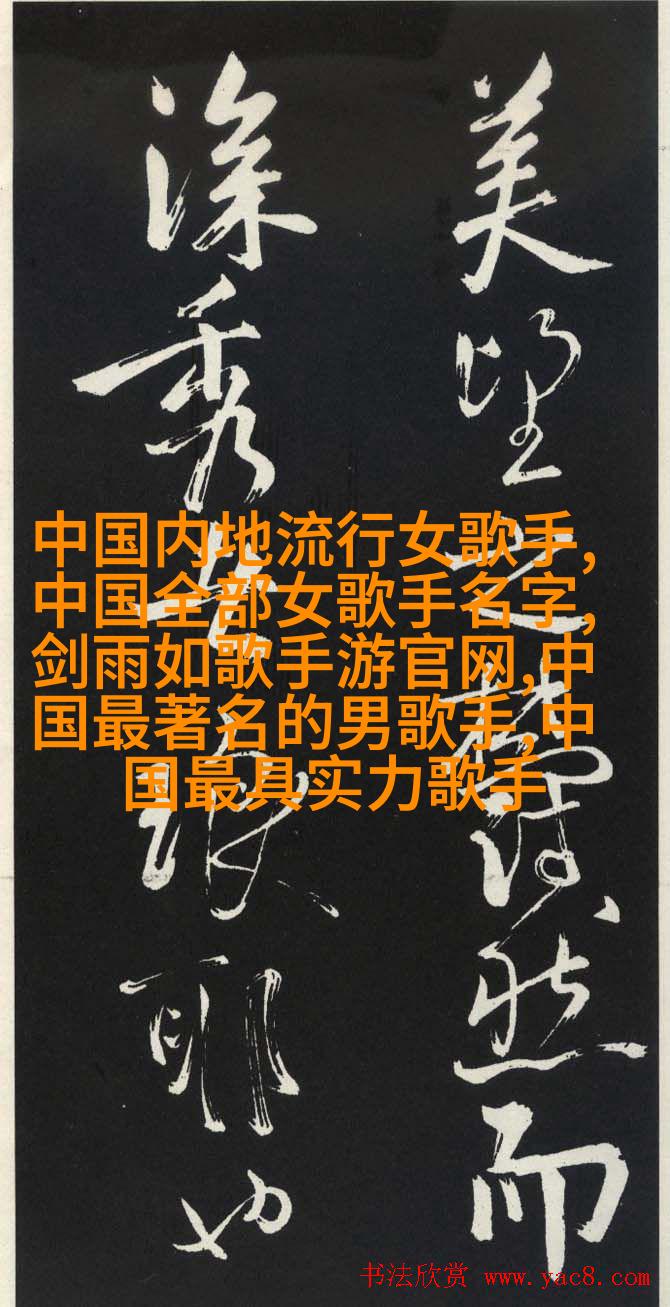 美望之蔚然而
深秀者琅耶也
中国内地流行女歌手,
中国全部女歌手名字,
剑雨如歌手游官网,中
国最著名的男歌手,中
国最具实力歌手
书法欣赏 www.yac8.com